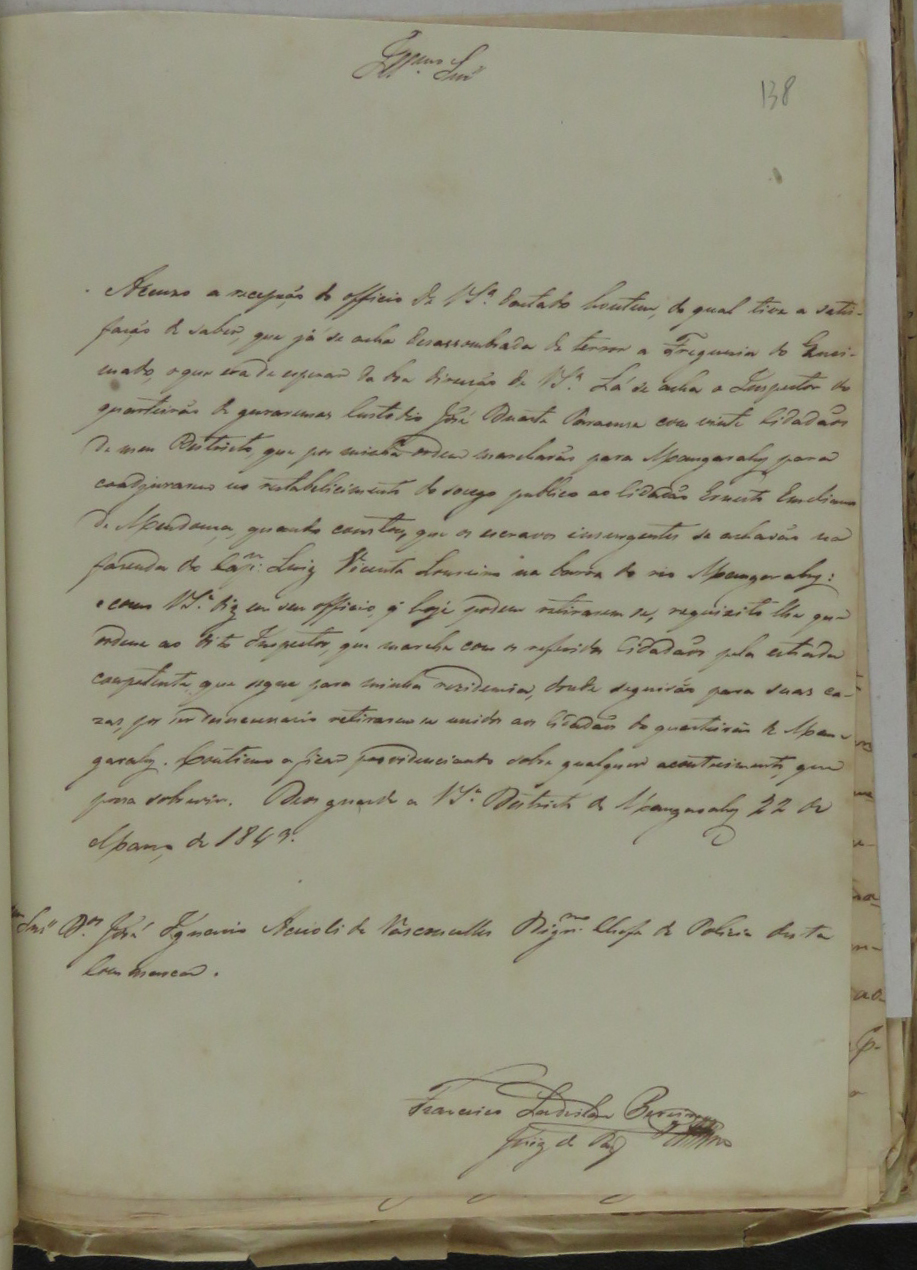 Illmo Snr
138
Acuso a recepção do officio de V Sª datado hontem, do qual tive a satis-
fação de saber, que já se acha desassombrada de terror a Freguesia do Quei-
mado, o que era de esperar da boa direcção de V Sª. Lá se acha o Inspector do
quarteirão de José Duarte com vinte Cidadãos
de meu Destricto, que por minha ordem marcharão para Mangarahy para
coadjuvarem no restabelicimento do socego publico ao Cidadão Ernesto Emeliano
de Mendonça, quando constou, que os escravos insurgentes se achavão na
fazenda do Capm. Luiz Vicente Loureiro na barra do rio Mangarahy:
e como V Sª diz em seu officio, q' hoje podem retirarem se, requizito lhe que
ordene ao dito Inspector, que marche com os referidos Cidadãos pela estrada
competente que segue para minha rezidencia, donde seguirão para suas ca-
zas, por ser desnecessario retirarem se unidos aos Cidadãos do quarteirão de Man-
garahy. Continuo a ficar providenciando sobre qualquer acontecimento, que
possa sobrevir. Deos guarde a V Sª Destricto de Mangarahy 22 de
Março de 1849.
Illmo Snr Dor José Ignacio Acioli de Vasconcellos Dignmo. Chefe de Policia desta
Commarca.
Francisco Ladislau
Juiz de Paz